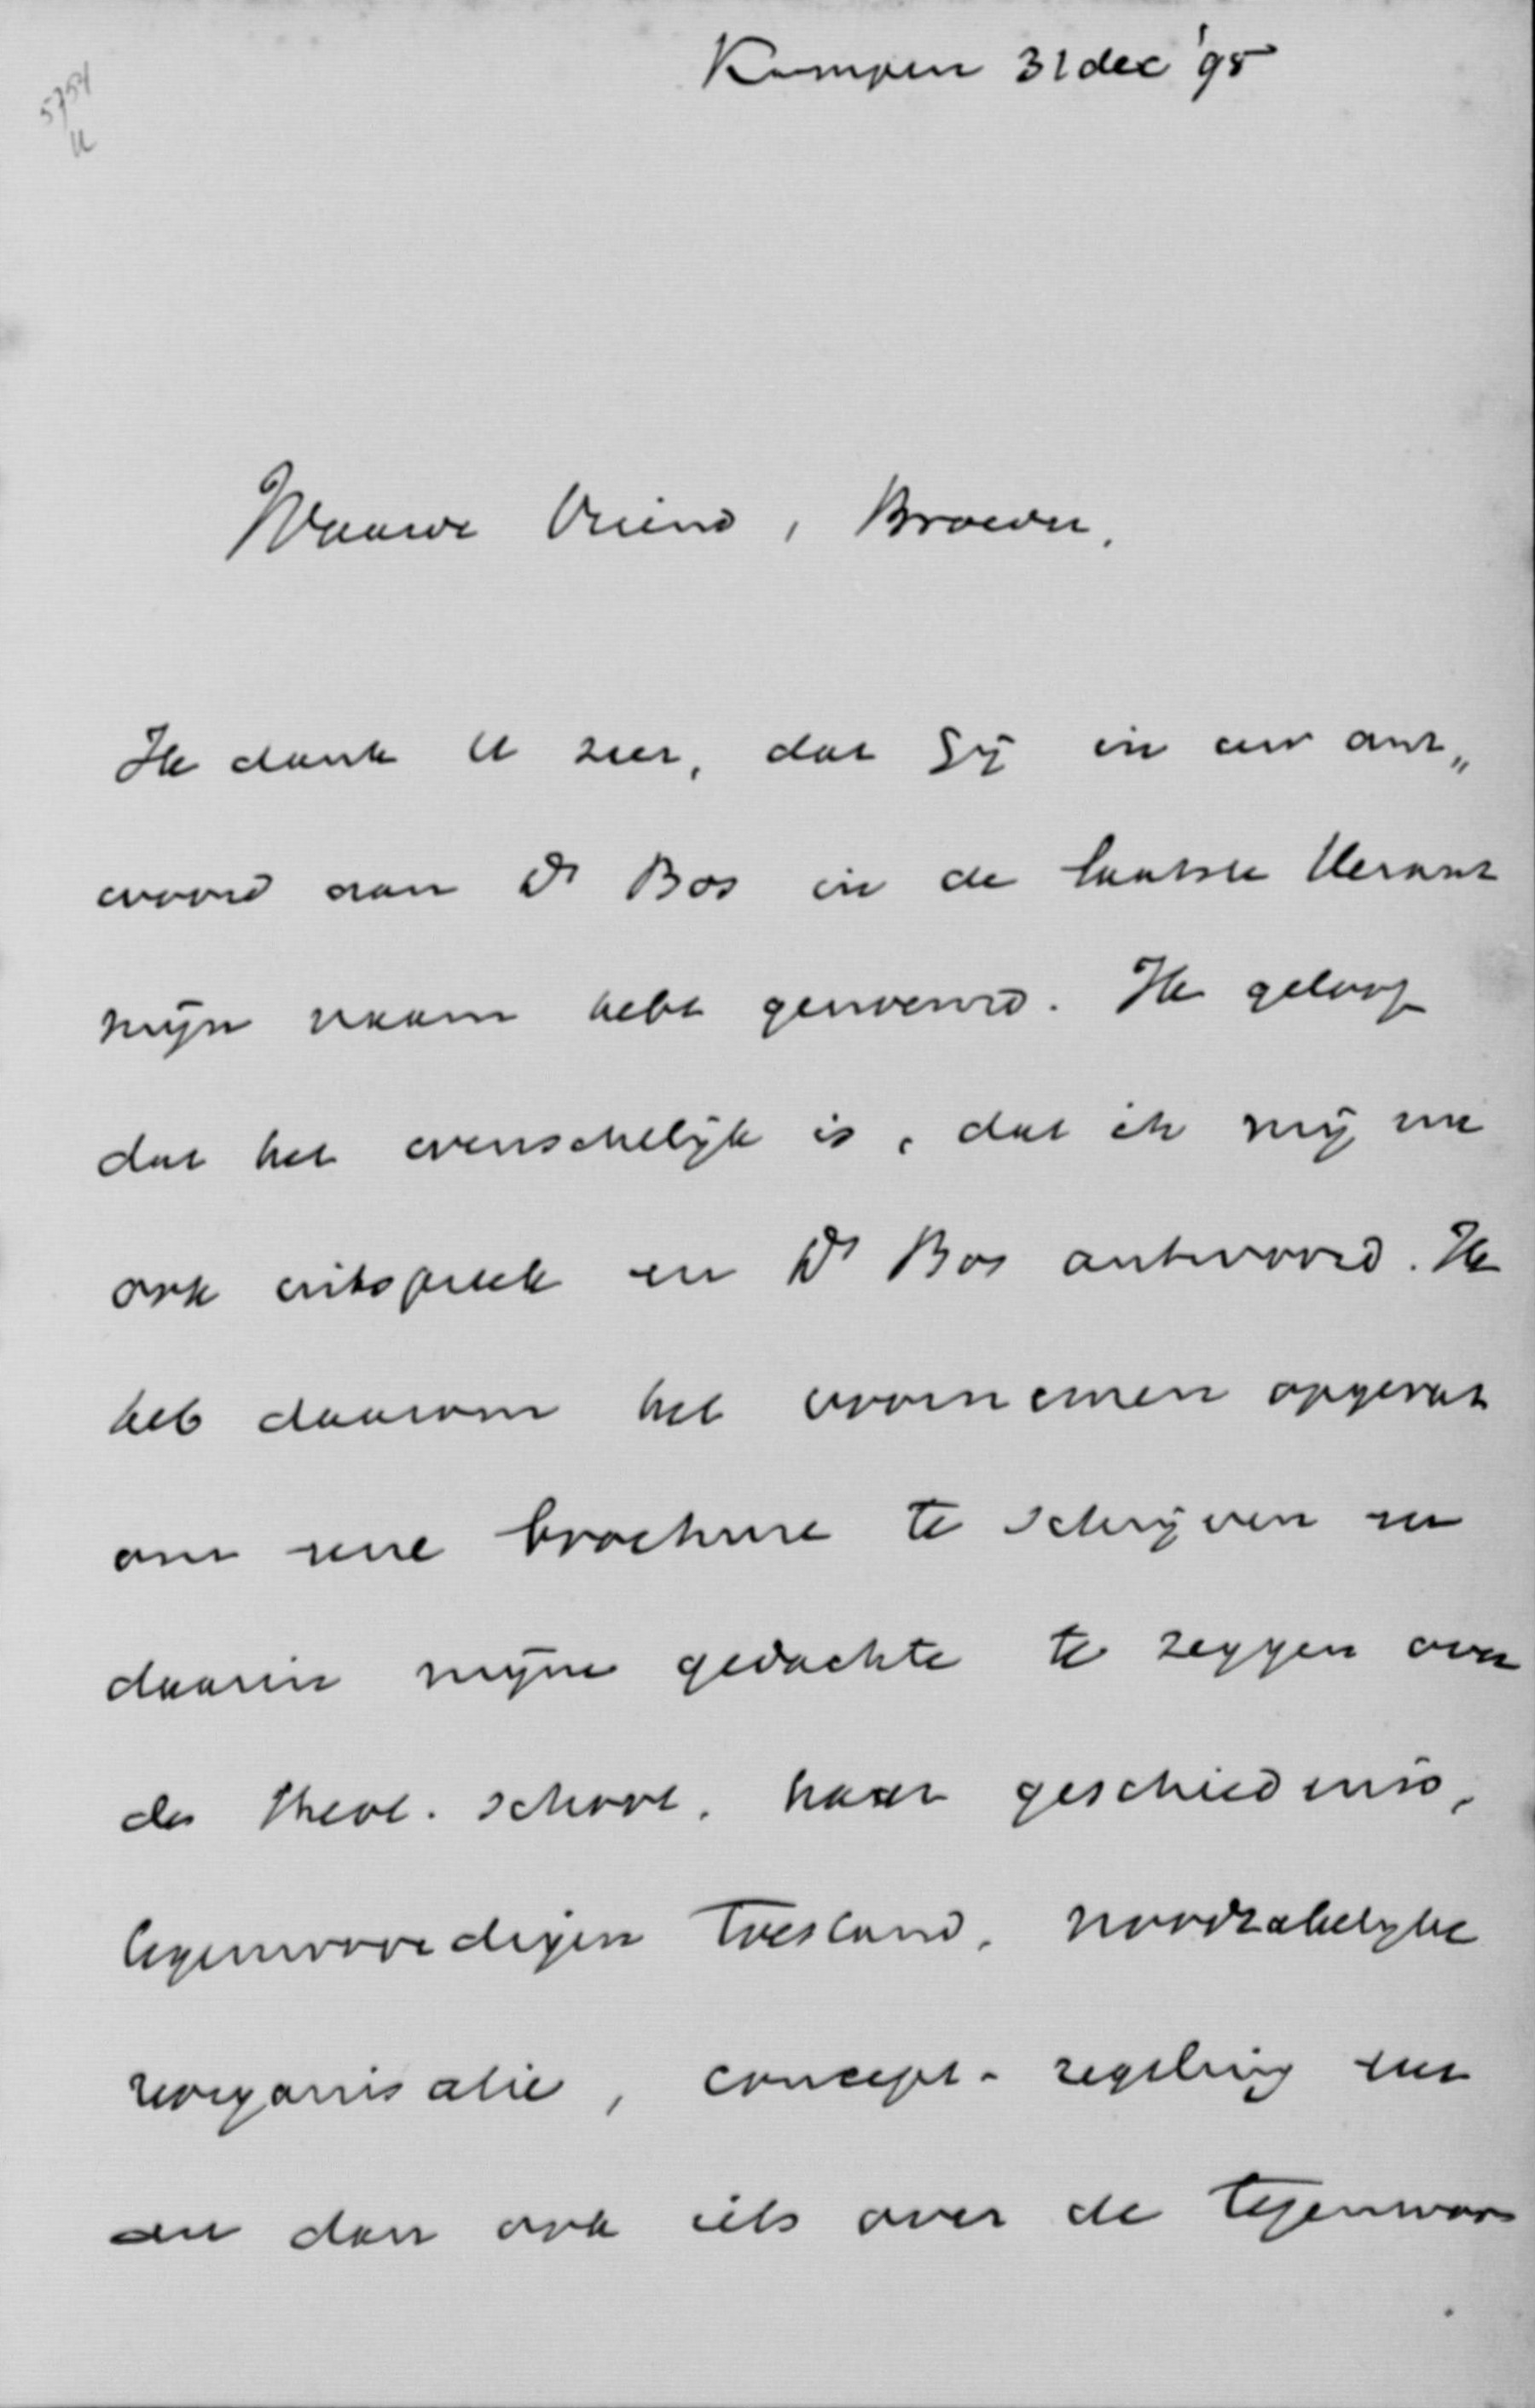 5754
U
Kampen 31 dec '95
Waarde Vriend, Broeder,
Ik dank U zeer, dat Gij in uw ant„
woord aan Ds Bos in de laatste Heraut
mijn naam hebt genoemd. Ik geloof
dat het wenschelijk is, dat ik mij nu
ook uitspreek en Ds Bos antwoord. Ik
heb daarom het voornemen opgevat
om eene brochure te schrijven en
daarin mijne gedachte te zeggen over
de Theol. school, haar geschiedenis,
tegenwoordigen toestand, noodzakelijke
reorganisatie, concept-regeling enz
en dan ook iets over de tegenwoor